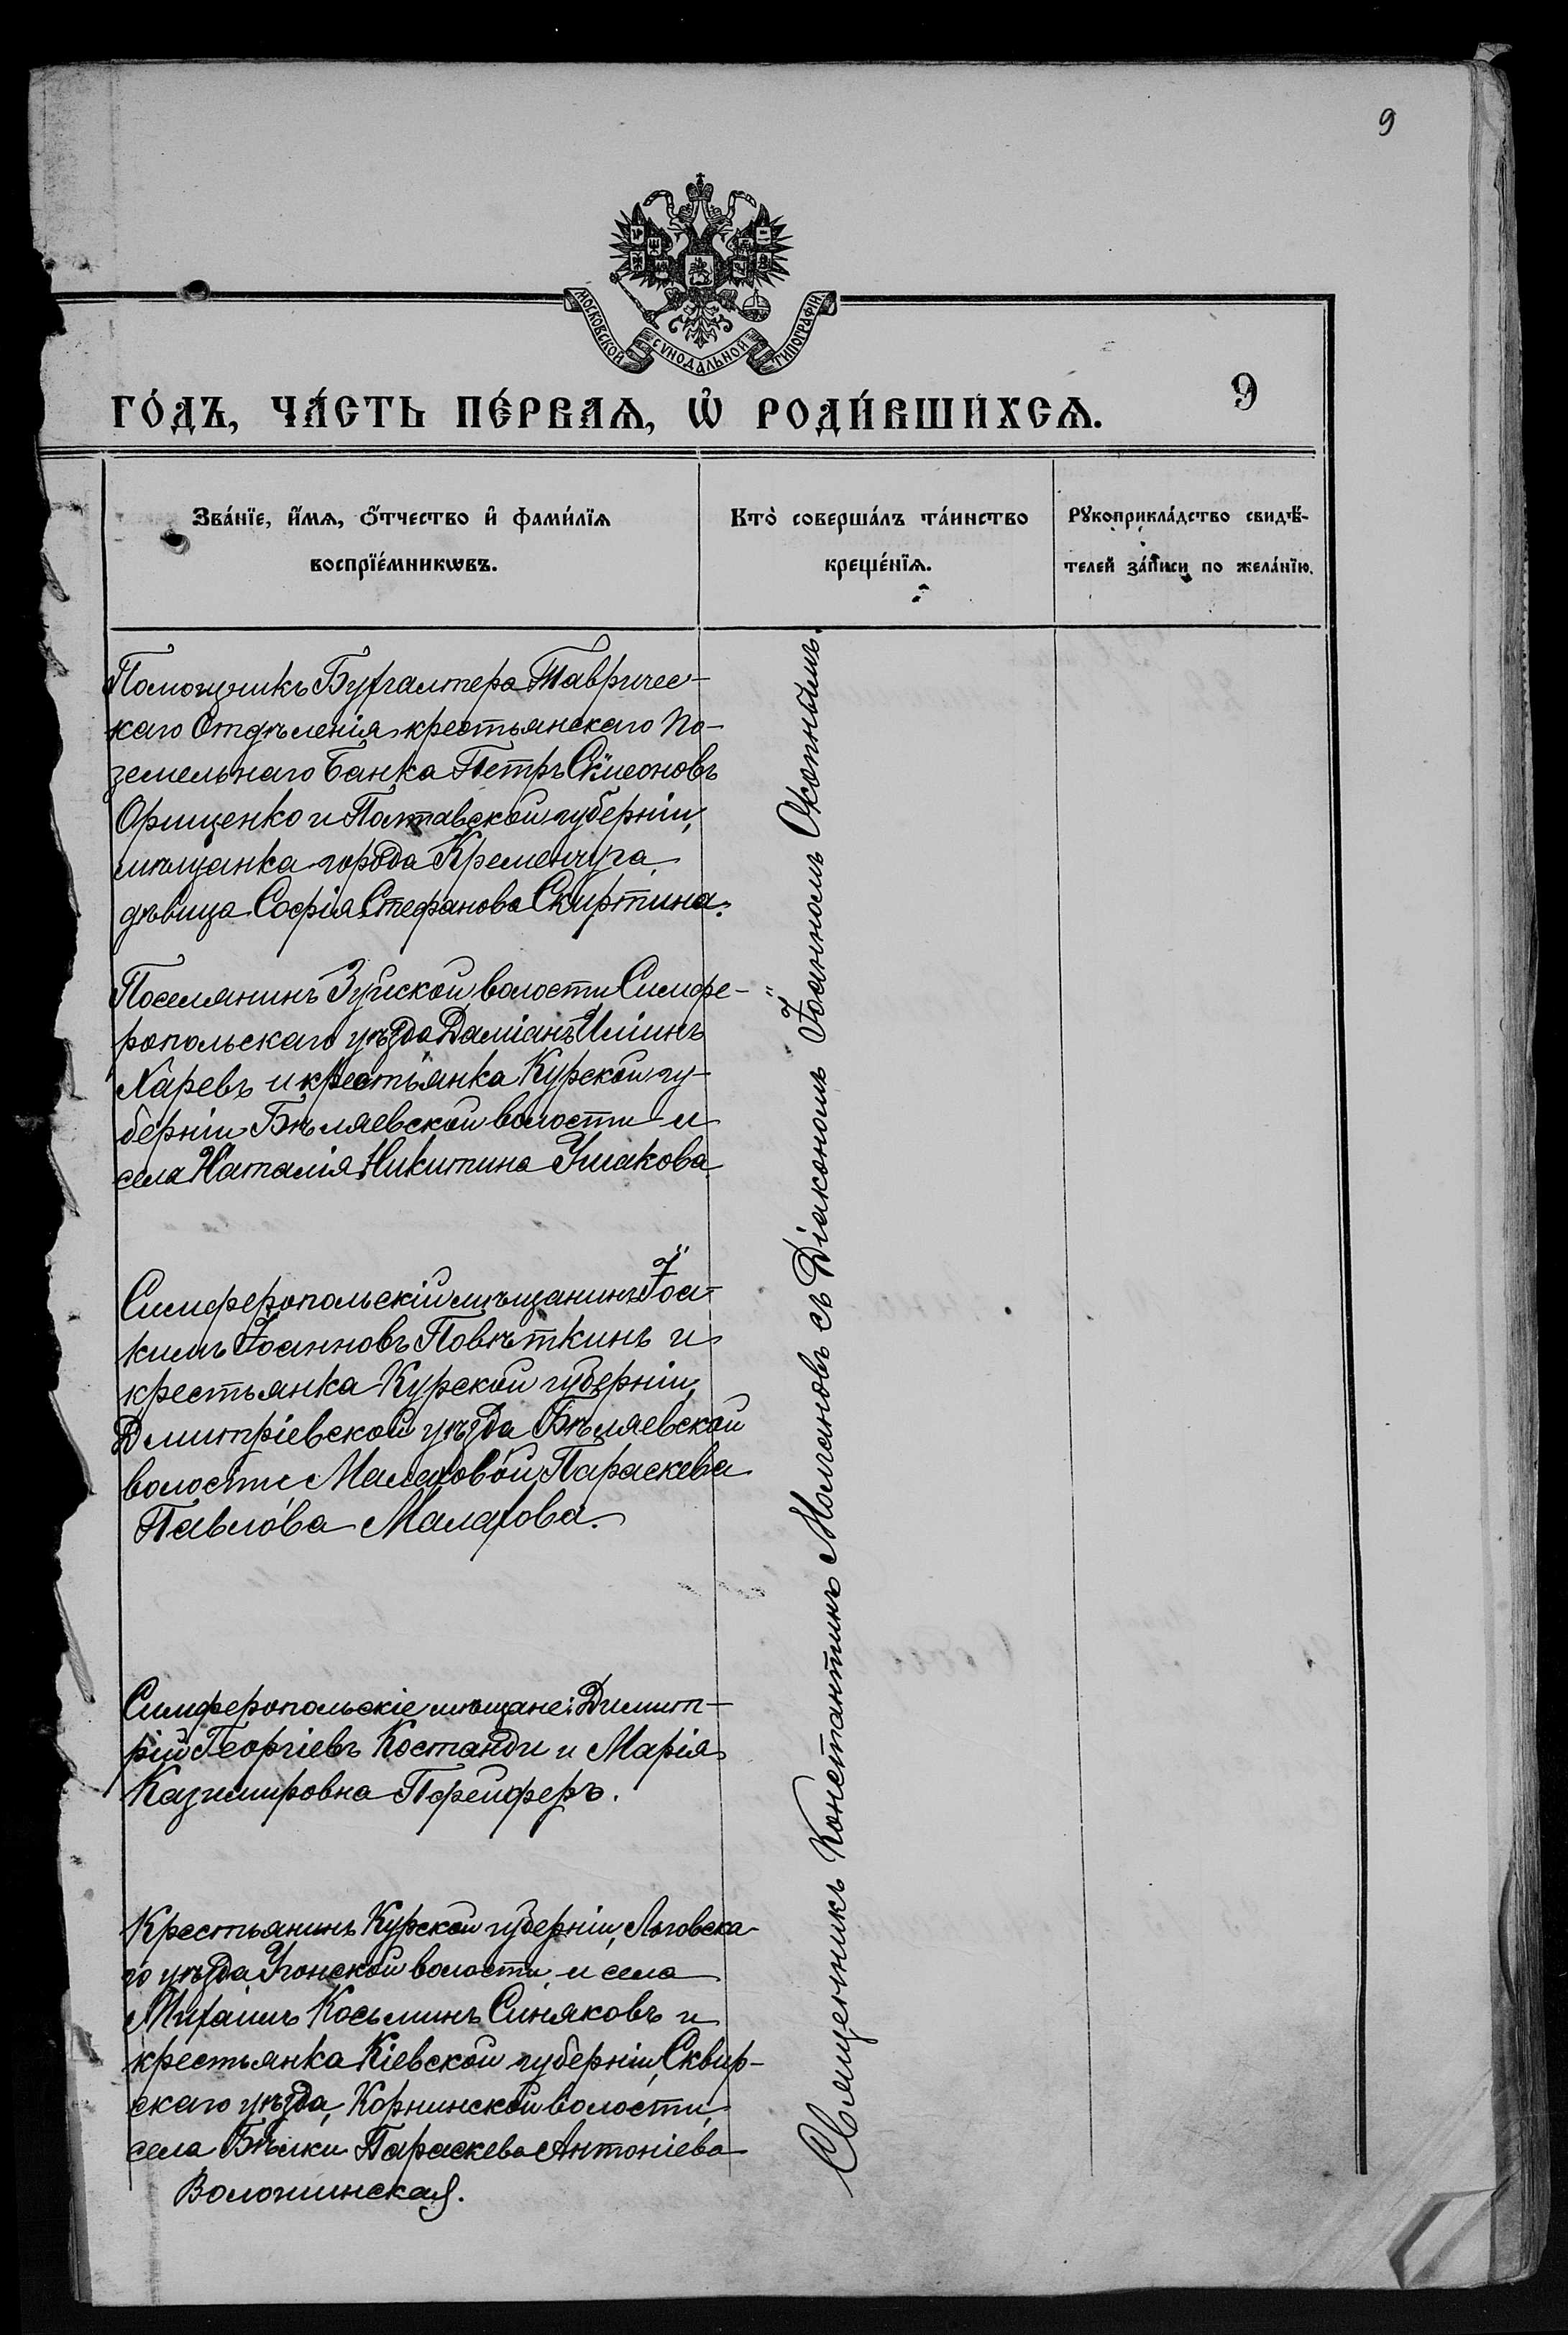 9
МОСКОВСКОЙ СѴНОДАЛЬНОЙ ТИПОГРАФІИ
ГО́ДЪ, ЧА́СТЬ ПЕ́РВАѦ, Ѡ҆ РОДИ́ВШИХСѦ.
9
Зва́нїе, и҆́мѧ, ѻ҆́тчество и҆ фамы́лїѧ
воспрїе́мникѡвъ.
Кто̀ соверша́лъ та́инство
креще́нїѧ.
Рꙋкоприкла́дство свидѣ́-
телей за́писи по жела́нїю.
Помощникъ Бухгалтера Тавричес-
каго Отдѣленія крестьянскаго По-
земельнаго Банка Петръ Сѵмеоновъ
Орищенко и Полтавской губерніи,
мѣщанка города Кременчуга,
дѣвица Софія Стефанова Скиртина.
Поселянинъ Зуйской волости Симфе-
ропольскаго уѣзда Даміанъ Иліинъ
Харевъ и крестьянка Курской гу-
берніи Бѣляевской волости и
села Наталія Никитина Ушакова.
Симферопольскій мѣщанинъ Іоа-
кимъ Іоанновъ Повѣткинъ и
крестьянка Курской губерніи,
Дмитріевской уѣзда Бѣляевской
волости Малаховой Параскева
Павлова Малахова.
Симферопольскіе мѣщане: Димит-
рій Георгіевъ Костанди и Марія
Казимировна Пфейферъ.
Крестьянинъ Курской губерніи, Льговска-
го уѣзда, Угонской волости, и села
Михаилъ Косьминъ Синяковъ и
крестьянка Кіевской губерніи, Сквир-
скаго уѣзда, Корнинской волости,
села Бѣлки Параскева Антоніева
Воложинская.
Священникъ Константинъ Молчановъ съ Діакономъ Іоанномъ Окопнымъ.